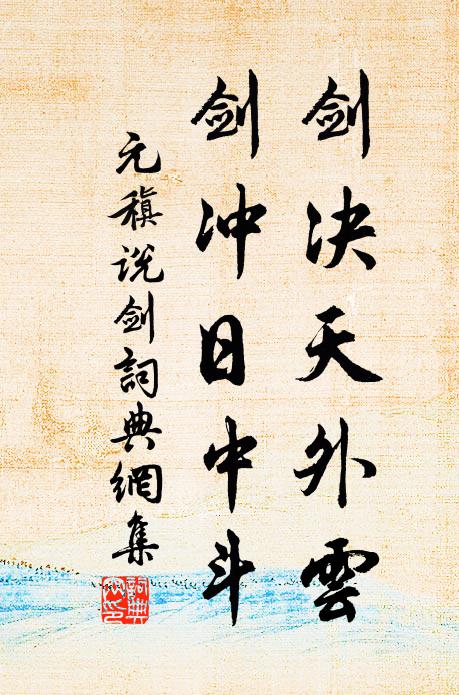 剑决天外雲
剑冲日中斗
元稹说剑詞典網集